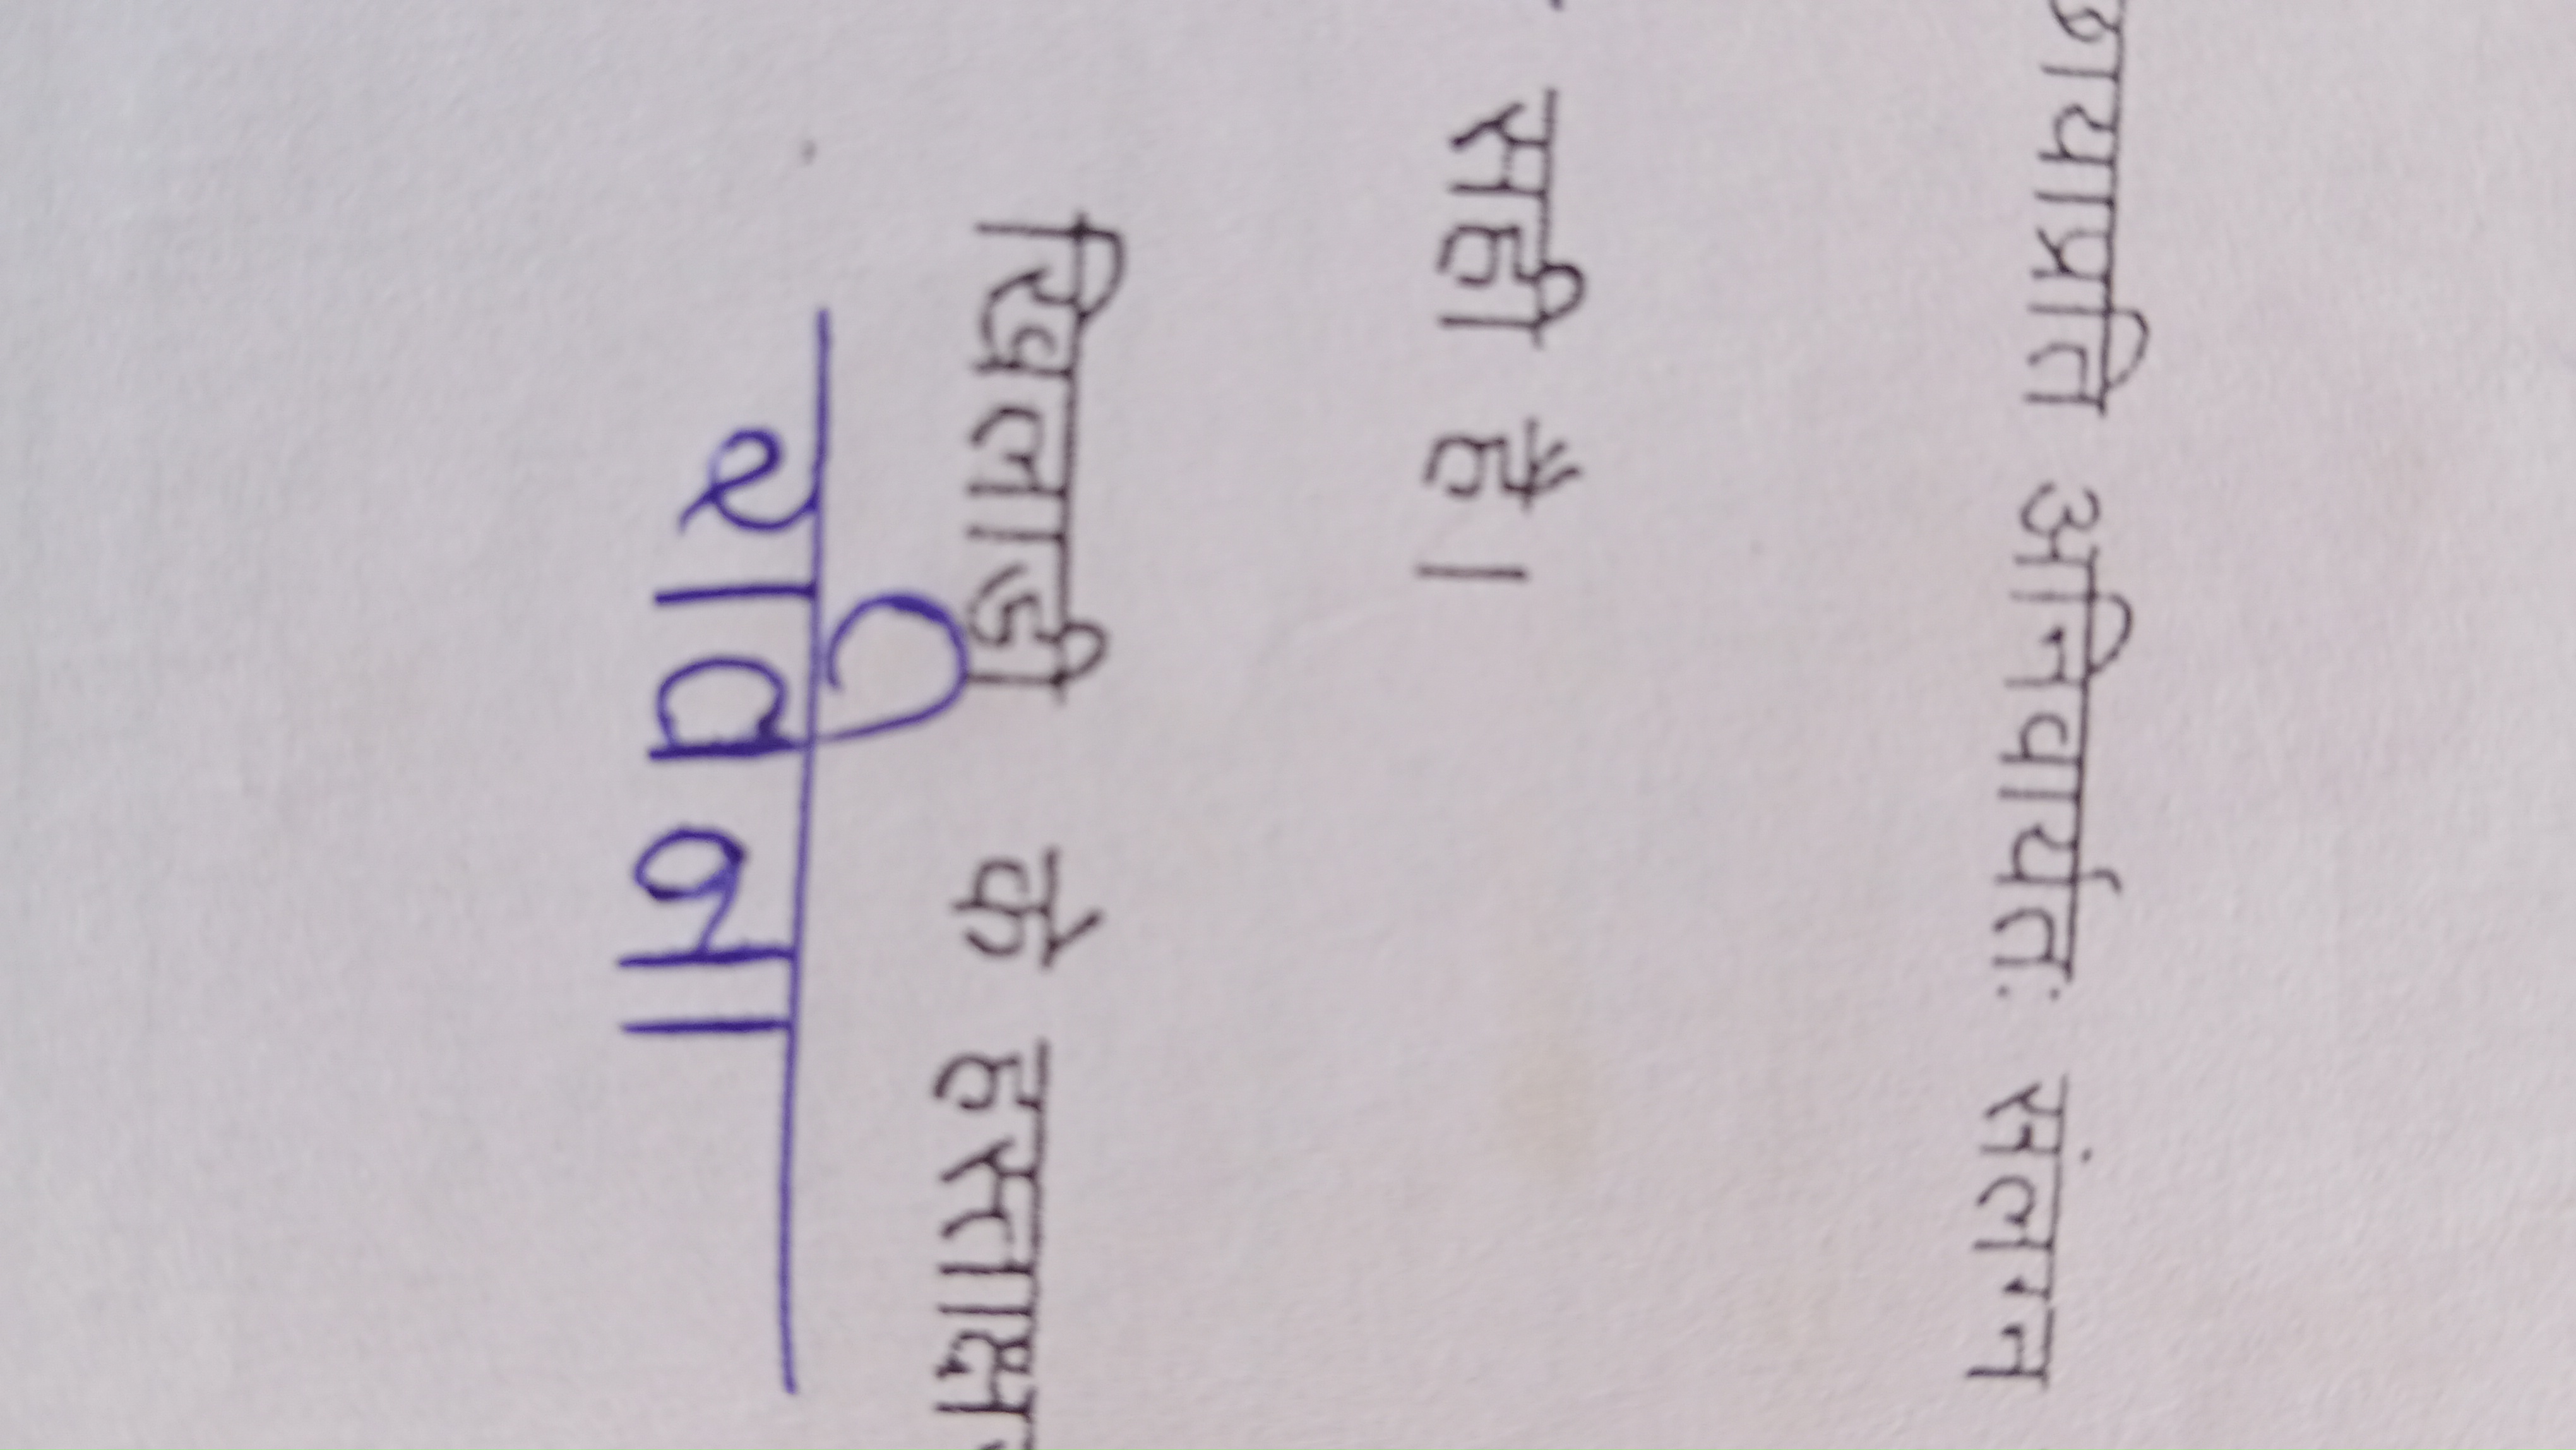 छायाप्रति अनिवार्यतः संलग्न
सही है।
खिलाडी के हस्ताक्षर
रविना